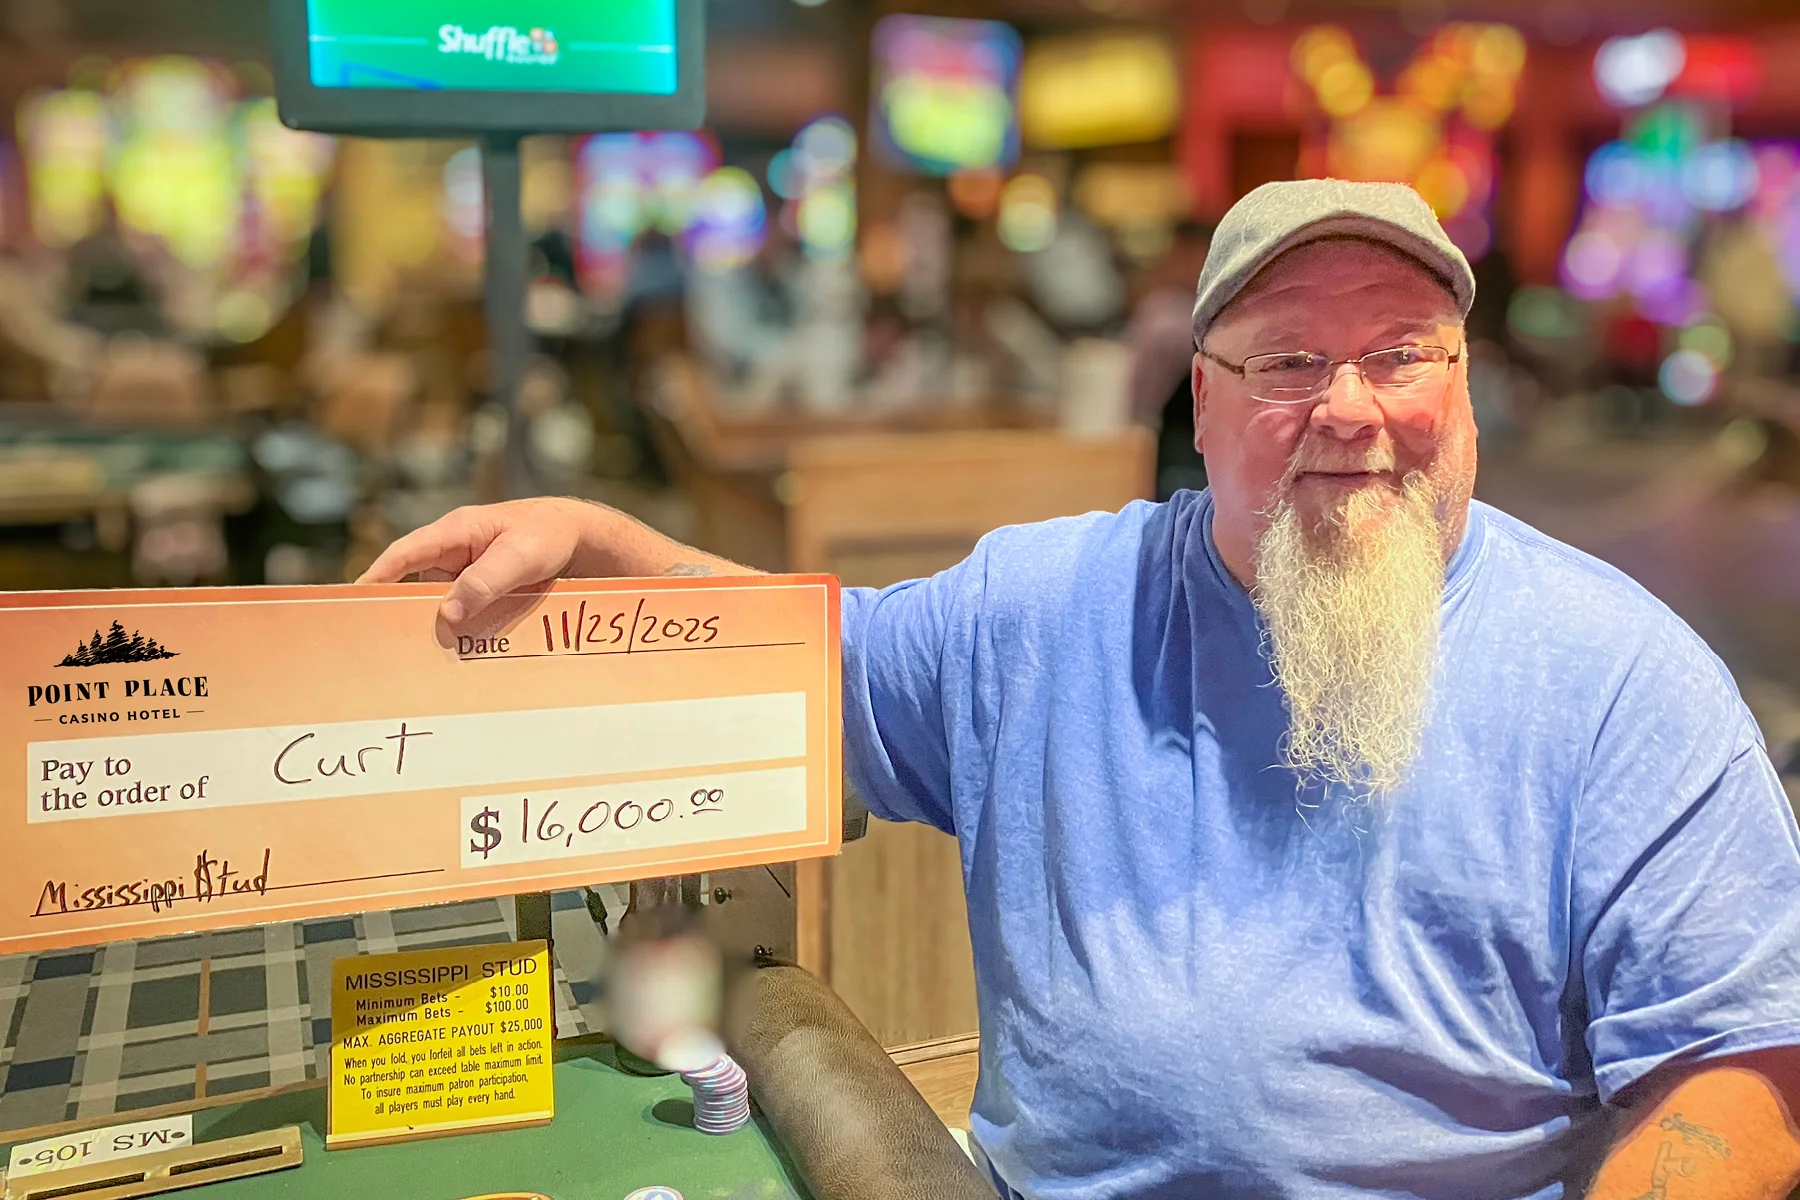 Shuffle
Date 11/25/2025
POINT PLACE
CASINO HOTEL
Pay to
the order of
Curt
$ 16,000.00
Mississippi Stud
MISSISSIPPI STUD
Minimum Bets - $10.00
Maximum Bets - $100.00
MAX. AGGREGATE PAYOUT $25,000
When you fold, you forfeit all bets left in action.
No partnership can exceed table maximum limit.
To insure maximum patron participation,
all players must play every hand.
•MS 105•